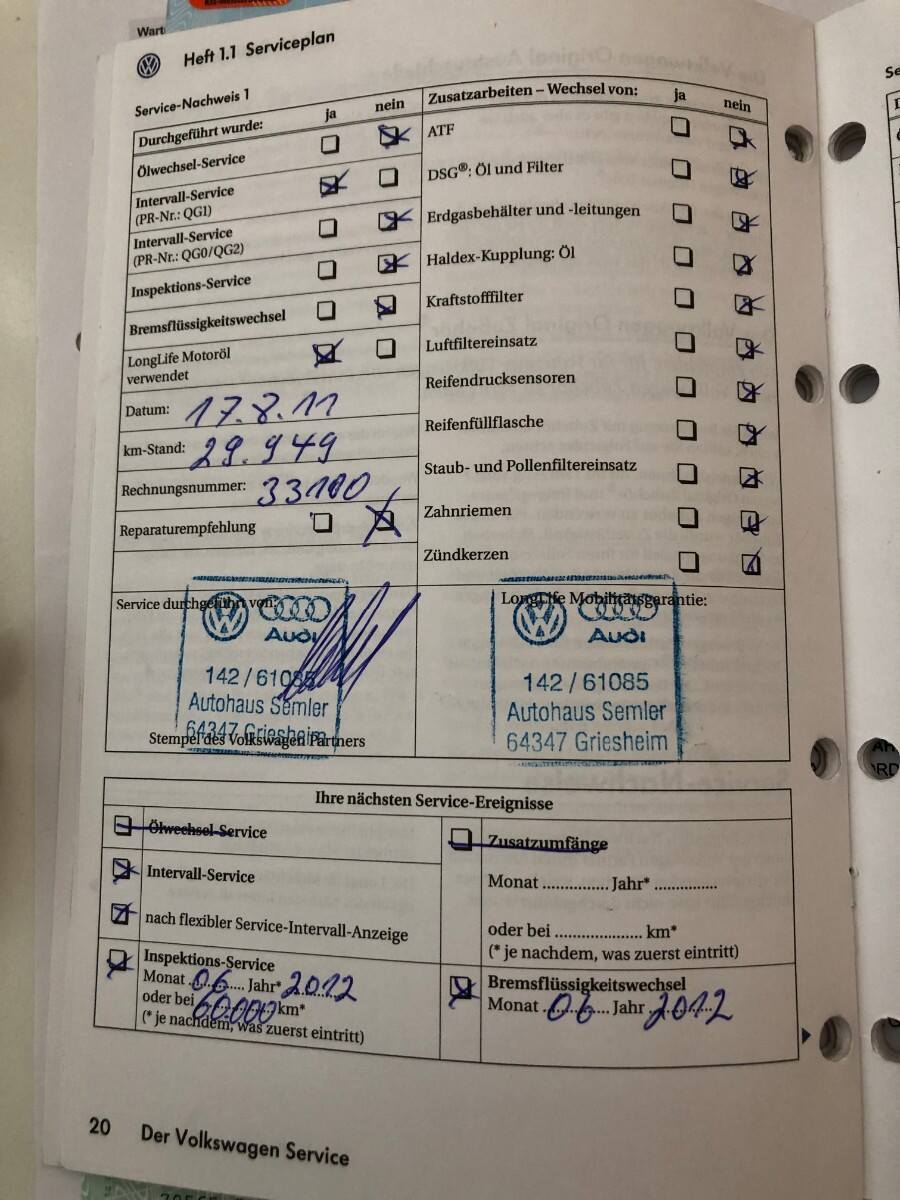 Wart
Heft 1.1 Serviceplan
Service-Nachweis 1
Durchgeführt wurde: ja nein
Ölwechsel-Service
Intervall-Service
(PR-Nr.: QG1)
Intervall-Service
(PR-Nr.: QG0/QG2)
Inspektions-Service
Bremsflüssigkeitswechsel
LongLife Motoröl
verwendet
Datum: 17.8.11
km-Stand: 29.949
Rechnungsnummer: 33100
Reparaturempfehlung
Zusatzarbeiten – Wechsel von: ja nein
ATF
DSG®: Öl und Filter
Erdgasbehälter und -leitungen
Haldex-Kupplung: Öl
Kraftstofffilter
Luftfiltereinsatz
Reifendrucksensoren
Reifenfüllflasche
Staub- und Pollenfiltereinsatz
Zahnriemen
Zündkerzen
Service durchgeführt von:
Audi
142 / 61085
Autohaus Semler
64347 Griesheim
Stempel des Volkswagen Partners
LongLife Mobilitätsgarantie:
Audi
142 / 61085
Autohaus Semler
64347 Griesheim
Ihre nächsten Service-Ereignisse
Ölwechsel-Service
Intervall-Service
nach flexibler Service-Intervall-Anzeige
Inspektions-Service
Monat 06 Jahr* 2012
oder bei 60.000 km*
(* je nachdem, was zuerst eintritt)
Zusatzumfänge
Monat ............... Jahr* ...............
oder bei ..................... km*
(* je nachdem, was zuerst eintritt)
Bremsflüssigkeitswechsel
Monat 06 Jahr 2012
20 Der Volkswagen Service